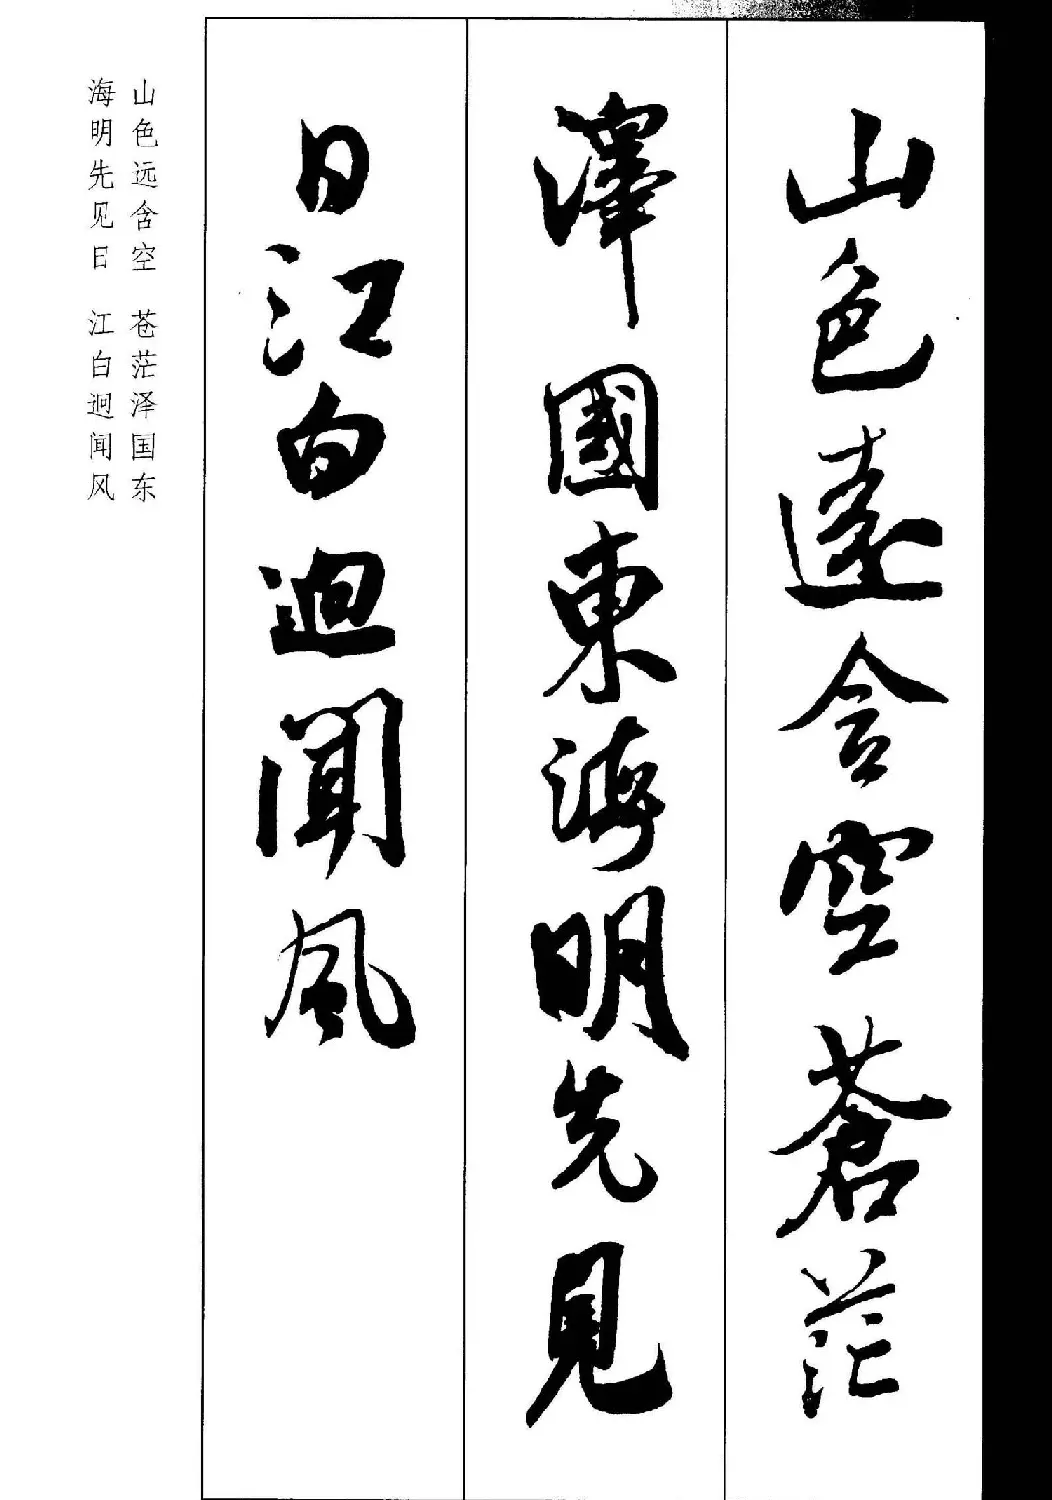 山色遠含空蒼茫
澤國東海明先見
日江白迥聞風
山色远含空 苍茫泽国东
海明先见日 江白迥闻风